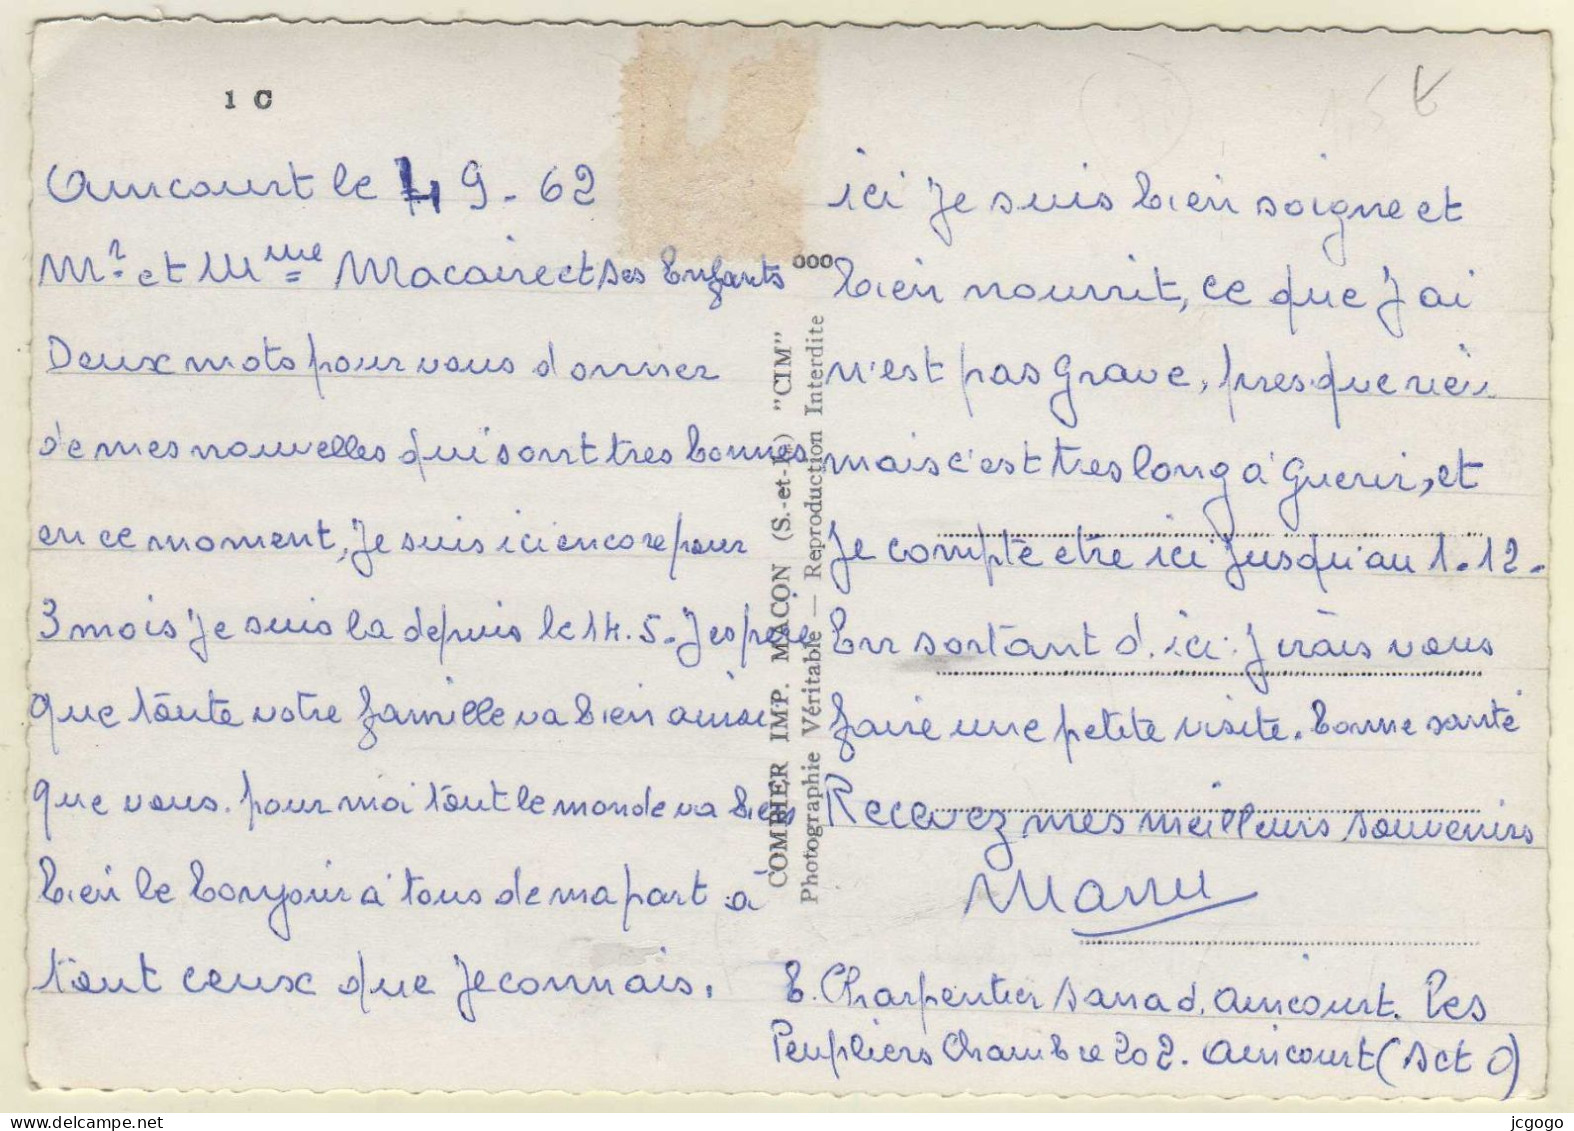 1 C
Aincourt le 4 9 - 62
Mr et Mme Macaire et ses Enfants
Deux mots pour vous donner
de mes nouvelles qui sont tres bonnes
en ce moment, je suis ici encore pour
3 mois je suis la depuis le 14.5 - J espere
que toute votre famille va bien ainsi
que vous. pour moi tout le monde va bien
bien le bonjour a tous de ma part à
tout ceux que je connais.
ici je suis bien soigne et
bien nourrit, ce que j'ai
n'est pas grave, presque rien
mais c'est tres long a guerir, et
je compte etre ici jusqu'au 1-12-
En sortant d'ici j'irais vous
faire une petite visite. bonne santé
Recevez mes meilleurs souvenirs
Manu
E. Charpentier sana d. Aincourt. Les
Peupliers Chambre 202. Aincourt (S et O)
ooo
COMBIER IMP. MACON (S.-et-L.) "CIM"
Photographie Véritable — Reproduction Interdite
1,5 €
jcgogo